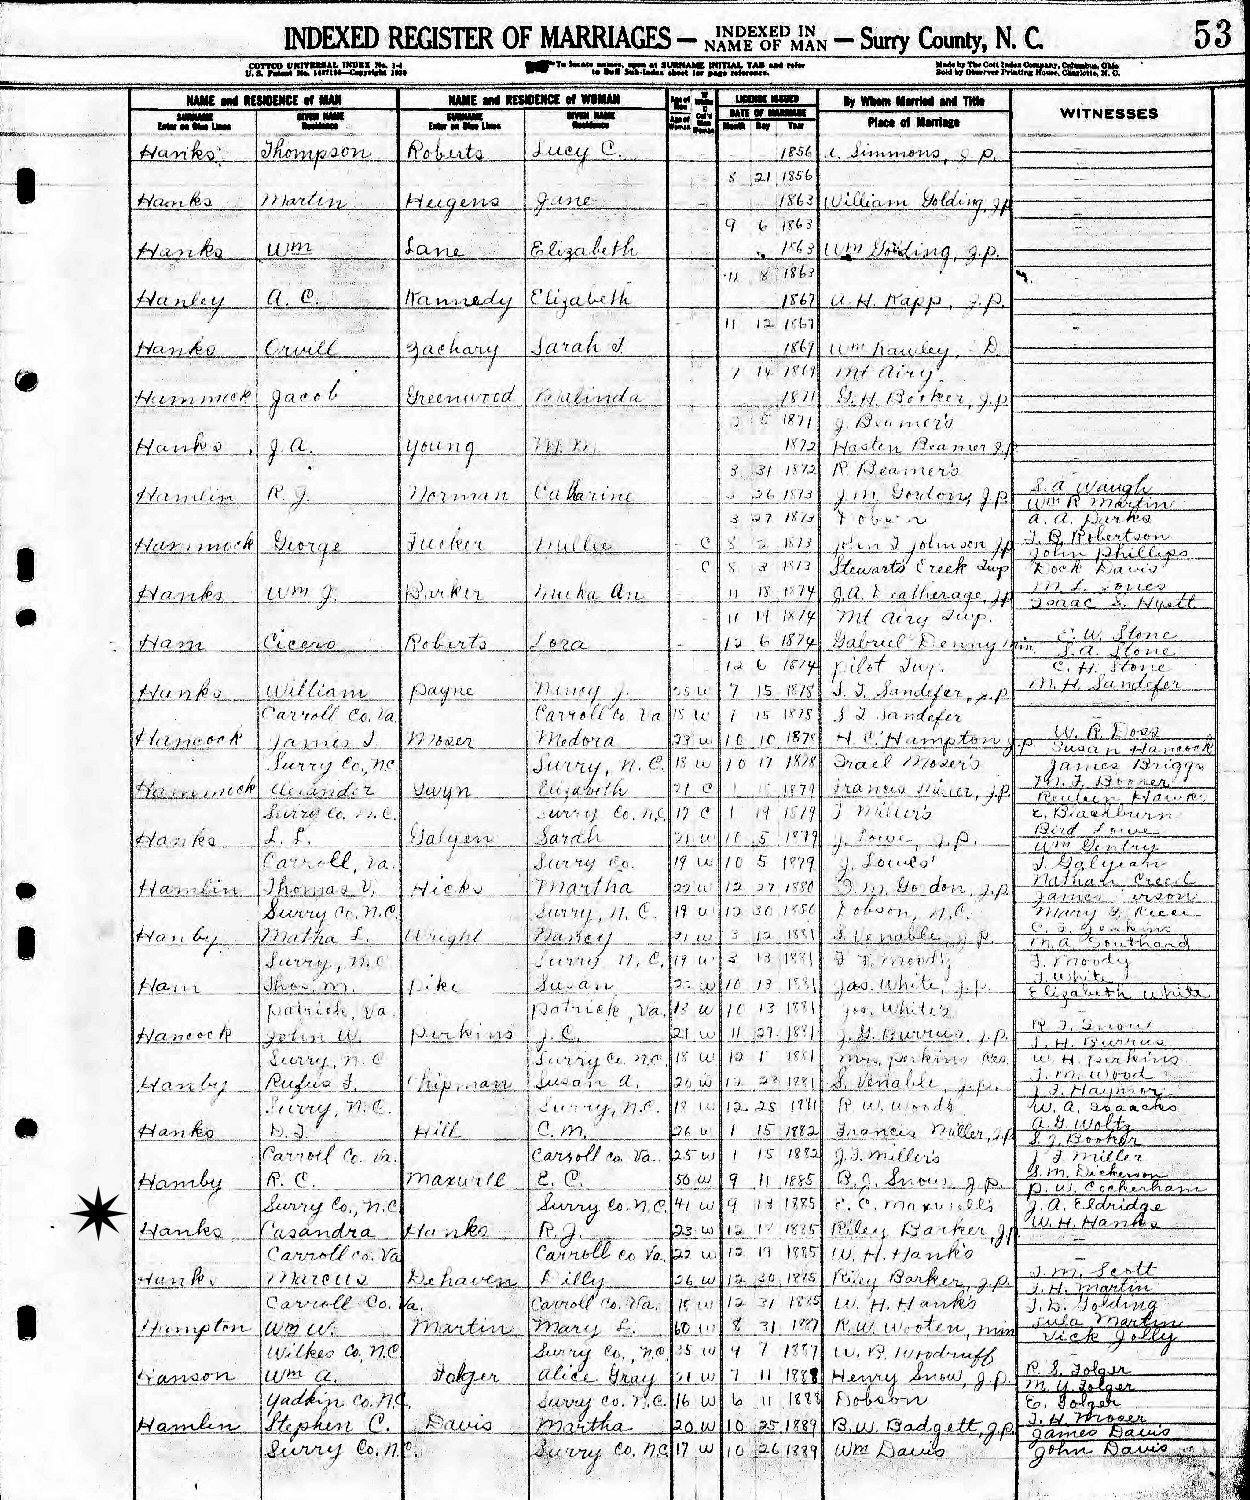 INDEXED REGISTER OF MARRIAGES — INDEXED IN NAME OF MAN — Surry County, N. C. 53
COTTCO UNIVERSAL INDEX No. To locate names, open at SURNAME INITIAL TAB and refer Made by The Cott Index Company, Columbus, Ohio
U. S. Patent No. to Buff Sub-Index sheet for page reference. Sold by Observer Printing House, Charlotte, N. C.
NAME and RESIDENCE of MAN NAME and RESIDENCE of WOMAN LICENSE ISSUED By Whom Married and Title WITNESSES
SURNAME GIVEN NAME SURNAME GIVEN NAME DATE OF MARRIAGE Place of Marriage
Enter on Blue Lines Residence Enter on Blue Lines Residence Month Day Year
Hanks Thompson Roberts Lucy C. 1856 Simmons, J.P.
8 21 1856
Hanks Martin Heigens Jane 1863 William Golding, JP
9 6 1863
Hanks Wm Lane Elizabeth 1863 Wm Golding, J.P.
11 8 1863
Hanley A. C. Kannedy Elizabeth 1867 A. H. Kapp, J.P.
11 12 1867
Hanks Orvill Zachary Sarah J. 1869 Wm Rawley, D.
1 14 1869 Mt Airy
Hammock Jacob Greenwood Malinda 1871 G. H. Booker, J.P.
1871 J. Beamer's
Hanks J. A. Young M. M. 1872 Hasten Beamer J.P.
3 31 1872 R Beamer's
Hamlin R. J. Norman Catharine 3 26 1873 J. M. Gordon, J.P. S. A. Waugh
Wm R Martin
3 27 1873 Dobson A. A. Parks
Hammock George Tucker Millie C 8 2 1873 John T Johnson JP T. B Robertson
John Phillips
C 8 3 1873 Stewarts Creek Twp Dock Davis
Hanks Wm J. Barker Micha An 11 18 1874 J. A. Leatherage, JP M. L. Jones
Isaac S. Hyatt
11 19 1874 Mt Airy Twp.
Ham Cicero Roberts Lora 12 6 1874 Gabriel Denny Min. C. W. Stone
S. A. Stone
12 6 1874 Pilot Twp. C. H. Stone
Hanks William Payne Nancy J. W 7 15 1878 J. T. Sandefer, J.P. M. H. Sandefer
Carroll Co. Va. Carroll Co Va 18 W 15 1878 J T Sandefer
Hancock James T Moser Medora 23 W 10 10 1878 H C. Hampton J.P. W. R. Doss
Susan Hancock
Surry Co., N.C. Surry, N. C. 18 W 10 17 1878 Irael Moser's James Briggs
Hammock Alexander Gwyn Elizabeth 21 C 1 1879 Francis Miller, J.P. M. F. Booker
Reuben Hawks
Surry Co. N.C. Surry Co. N.C. 17 C 1 19 1879 F Miller's E. Blackburn
Hanks L. L. Galyen Sarah 21 W 10 5 1879 J. Lowe, J.P. Bird Lowe
Wm Gentry
Carroll, Va. Surry Co. 19 W 10 5 1879 J. Lowes' J. Galyean
Hamlin Thomas V. Hicks Martha 22 W 12 27 1880 J. M. Gordon, J.P. Nathan Creed
James
Surry Co., N.C. Surry, N. C. 19 W 12 30 1880 Dobson, N.C. Mary
Hanby Matha L. Wright Nancy 21 W 3 12 1881 S. Venable, J.P. C. J. Jenkins
M. A. Southard
Surry, N.C. Surry N. C. 19 W 3 13 1881 F. F. Moody F. Moody
Ham Thos. M. Pike Susan 22 W 10 13 1881 Jas. White, J.P. J. White
Elizabeth White
Patrick, Va. Patrick, Va. 18 W 10 13 1881 Jas. White's
Hancock John W. Perkins J. C. 21 W 11 27 1881 J. G. Burrus, J.P. R. F. Snow
J. H. Burrus
Surry, N.C. Surry Co. N.C. 18 W 12 1 1881 Mrs. Perkins Res. W. H. Perkins
Hanby Rufus F. Chipman Susan A. 20 W 12 23 1881 S. Venable, J.P. J. M. Wood
J. F. Haymor
Surry, N.C. Surry, N.C. 18 W 12 25 1881 R W. Woods W. A. Isaacks
Hanks D. J. Hill C. M. 26 W 1 15 1882 Francis Miller, J.P. A. G. Woltz
S. J. Booker
Carroll Co. Va. Carroll Co. Va. 25 W 1 15 1882 J. F. Miller's J F Miller
Hamby R. C. Maxwell E. C. 50 W 9 11 1885 B. J. Snow, J.P. G. M. Dickerson
P. W. Cockerham
Surry Co., N.C. Surry Co. N.C. 41 W 9 13 1885 E. C. Maxwell's J. A. Eldridge
Hanks Casandra Hanks R. J. 23 W 12 17 1885 Riley Barker, J.P. W. H. Hanks
Carroll Co. Va Carroll Co Va. 22 W 12 17 1885 W. H. Hanks
Hanks Marcus Dehaven Dilly 26 W 12 30 1885 Riley Barker, J.P. J. M. Scott
J. H. Martin
Carroll Co. Va. Carroll Co. Va. 18 W 12 31 1885 W. H. Hanks J. D. Golding
Hampton Wm W. Martin Mary L. 60 W 8 31 1887 R. W. Wooten, Min Lula Martin
Vick Jolly
Wilkes Co, N.C. Surry Co., N.C. 35 W 9 7 1887 W. B. Woodruff
Hanson Wm A. Folger Alice Gray 21 W 7 11 1888 Henry Snow, J.P. R. S. Folger
M. Y. Folger
Yadkin Co. N.C. Surry Co. N.C. 16 W 6 11 1888 Dobson E. Folger
Hamlin Stephen C. Davis Martha 20 W 10 25 1889 B. W. Badgett, J.P. J. H. Moser
James Davis
Surry Co. N.C. Surry Co. N.C. 17 W 10 26 1889 Wm Davis John Davis